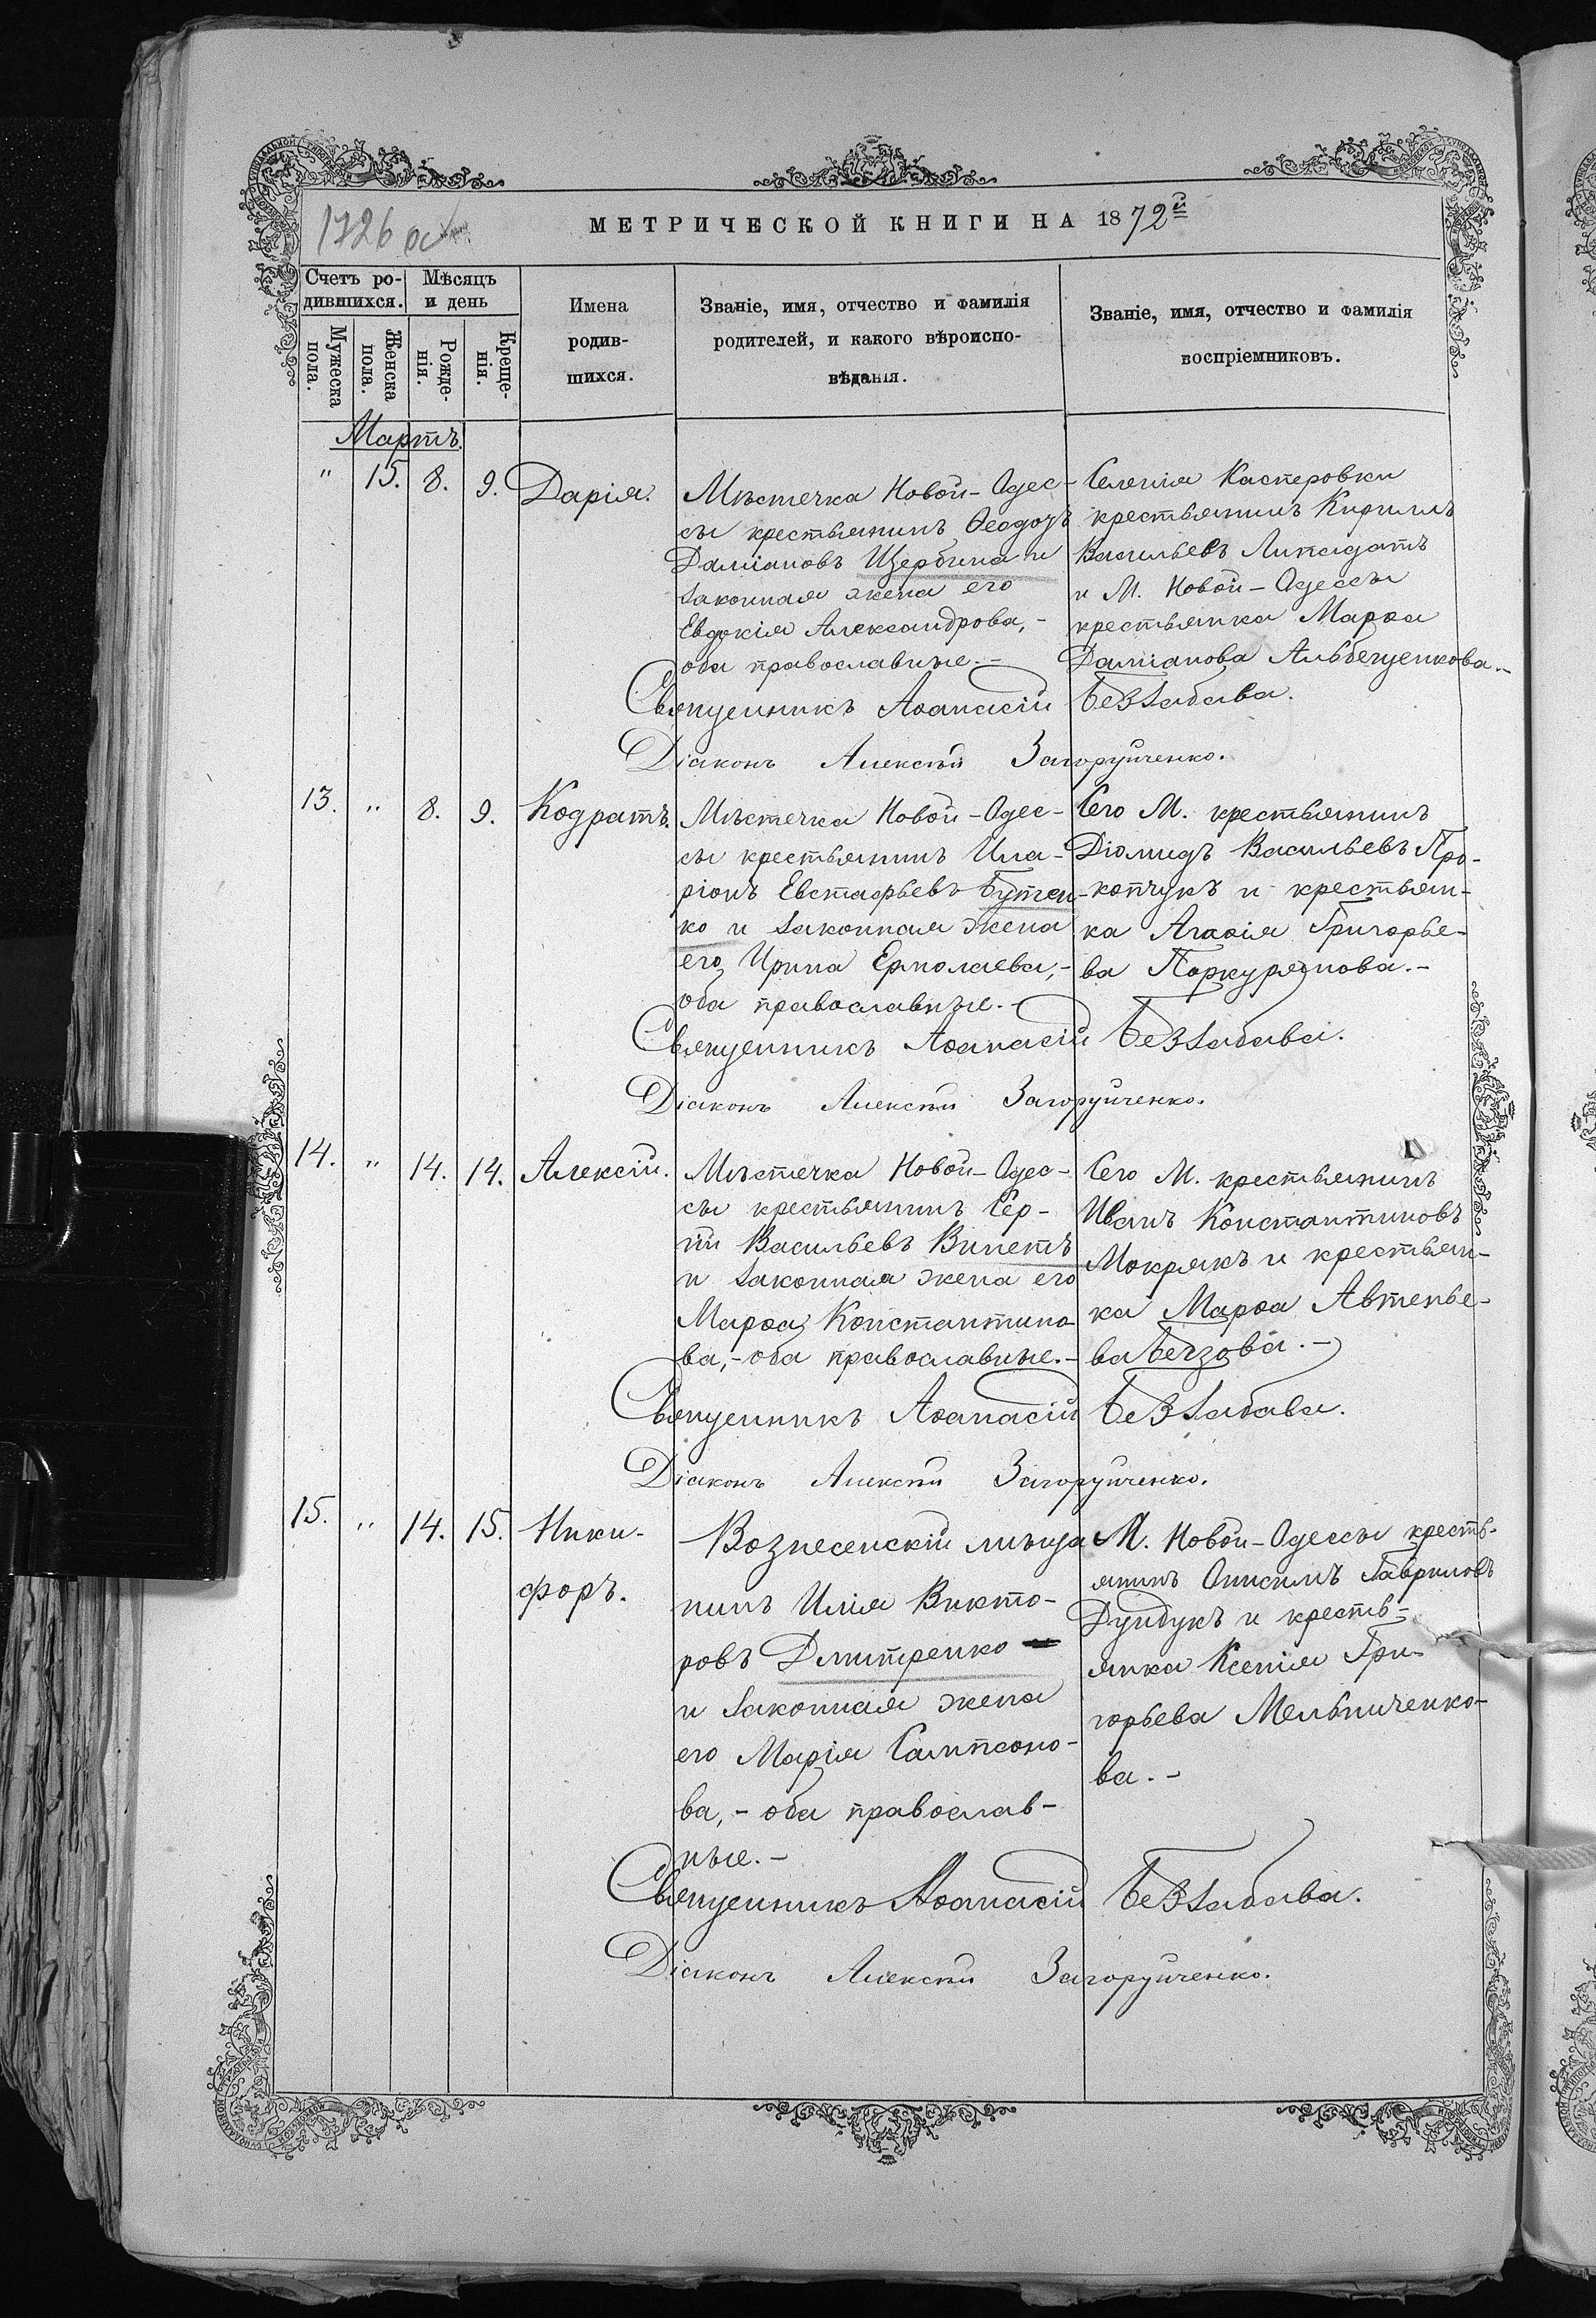 1726 об
МЕТРИЧЕСКОЙ КНИГИ НА 1872й
Счетъ ро-
дившихся.
Мѣсяцъ
и день
Мужеска
пола.
Женска
пола.
Рожде-
нія.
Креще-
нія.
Имена
родив-
шихся.
Званіе, имя, отчество и фамилія
родителей, и какого вѣроиспо-
вѣданія.
Званіе, имя, отчество и фамилія
воспріемниковъ.
Мартъ.
" 15. 8. 9. Дарія.
Мѣстечка Новой-Одес-
сы крестьянинъ Ѳеодоръ
Даміановъ Щербина и
законная жена его
Евдокія Александрова,-
оба православные.-
Селенія Касперовки
крестьянинъ Кириллъ
Васильевъ
и М. Новой-Одессы
крестьянка Марѳа
Даміанова
Священникъ Аѳанасій Беззабава.
Діаконъ Алексѣй Загоруйченко.
13. " 8. 9. Кодратъ.
Мѣстечка Новой-Одес-
сы крестьянинъ Ила-
ріонъ Евстафьевъ Бутен-
ко и законная жена
его Ирина Ермолаева,-
оба православные.-
Сего М. крестьянинъ
Діомидъ Васильевъ Про-
копчукъ и крестьян-
ка Агаѳія Григорье-
ва
Священникъ Аѳанасій Беззабава.
Діаконъ Алексѣй Загоруйченко.
14. " 14. 14. Алексій.
Мѣстечка Новой-Одес-
сы крестьянинъ Сер-
гій Васильевъ Вилетъ
и законная жена его
Марѳа Константино-
ва,-оба православные.-
Сего М. крестьянинъ
Иванъ Константиновъ
Мокрякъ и крестьян-
ка Марѳа
Священникъ Аѳанасій Беззабава.
Діаконъ Алексѣй Загоруйченко.
15. " 14. 15. Ники-
форъ.
Вознесенскій мѣща
нинъ Илія Викто-
ровъ Дмитренко
и законная жена
его Марія Сампсоно-
ва,- оба православ-
ные.-
М. Новой-Одессы кресть-
янинъ Онисимъ Гавриловъ
Дундукъ и кресть-
янка Ксенія Гри-
горьева Мельниченко-
ва.-
Священникъ Аѳанасій Беззабава.
Діаконъ Алексѣй Загоруйченко.